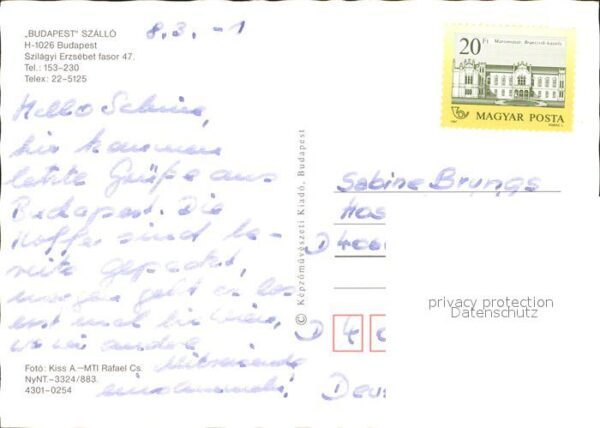 „BUDAPEST" SZÁLLÓ
H-1026 Budapest
Szilágyi Erzsébet fasor 47.
Tel.: 153–230
Telex: 22-5125
8.3. -1
Hallo Sabine,
hier kommen
letzte Grüße aus
Budapest. Die
Koffer sind be-
reits gepackt,
morgen geht es
erst mal bis Wien,
wo wir andere
Mitreisende
Foto: Kiss A.—MTI Rafael Cs.
NyNT.–3324/883.
4301-0254
© Képzőművészeti Kiadó, Budapest
20 Ft Martonvásár, Brunszvik-kastély
MAGYAR POSTA
Sabine Brungs
Has
D 4
Deu
privacy protection
Datenschutz